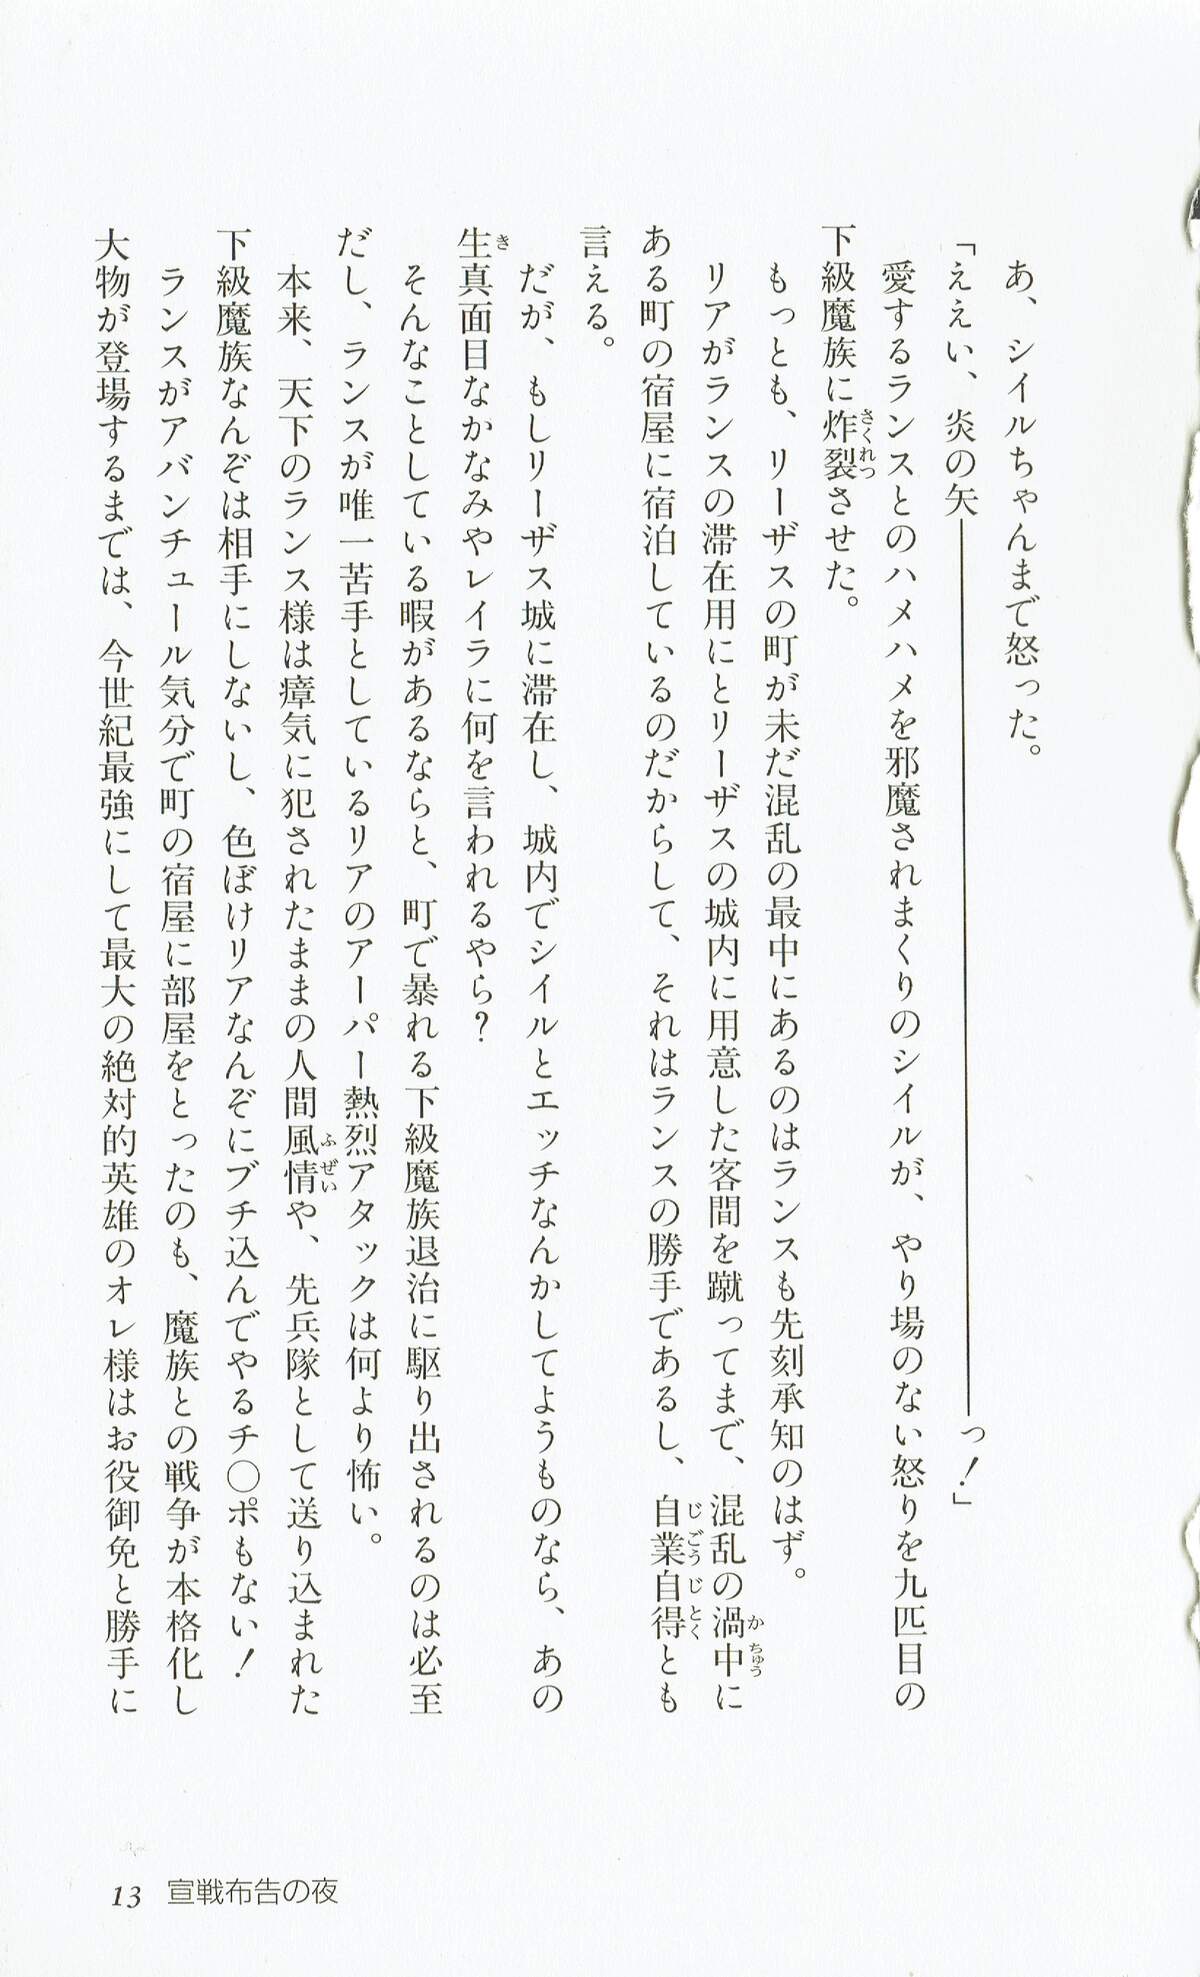 あ、シイルちゃんまで怒った。
「ええい、炎の矢――――――――――――――――――――っ！」
愛するランスとのハメハメを邪魔されまくりのシイルが、やり場のない怒りを九匹目の
下級魔族に炸裂させた。
もっとも、リーザスの町が未だ混乱の最中にあるのはランスも先刻承知のはず。
リアがランスの滞在用にとリーザスの城内に用意した客間を蹴ってまで、混乱の渦中に
ある町の宿屋に宿泊しているのだからして、それはランスの勝手であるし、自業自得とも
言える。
だが、もしリーザス城に滞在し、城内でシイルとエッチなんかしてようものなら、あの
生真面目なかなみやレイラに何を言われるやら？
そんなことしている暇があるならと、町で暴れる下級魔族退治に駆り出されるのは必至
だし、ランスが唯一苦手としているリアのアーパー熱烈アタックは何より怖い。
本来、天下のランス様は瘴気に犯されたままの人間風情や、先兵隊として送り込まれた
下級魔族なんぞは相手にしないし、色ぼけリアなんぞにブチ込んでやるチ〇ポもない！
ランスがアバンチュール気分で町の宿屋に部屋をとったのも、魔族との戦争が本格化し
大物が登場するまでは、今世紀最強にして最大の絶対的英雄のオレ様はお役御免と勝手に
13 宣戦布告の夜